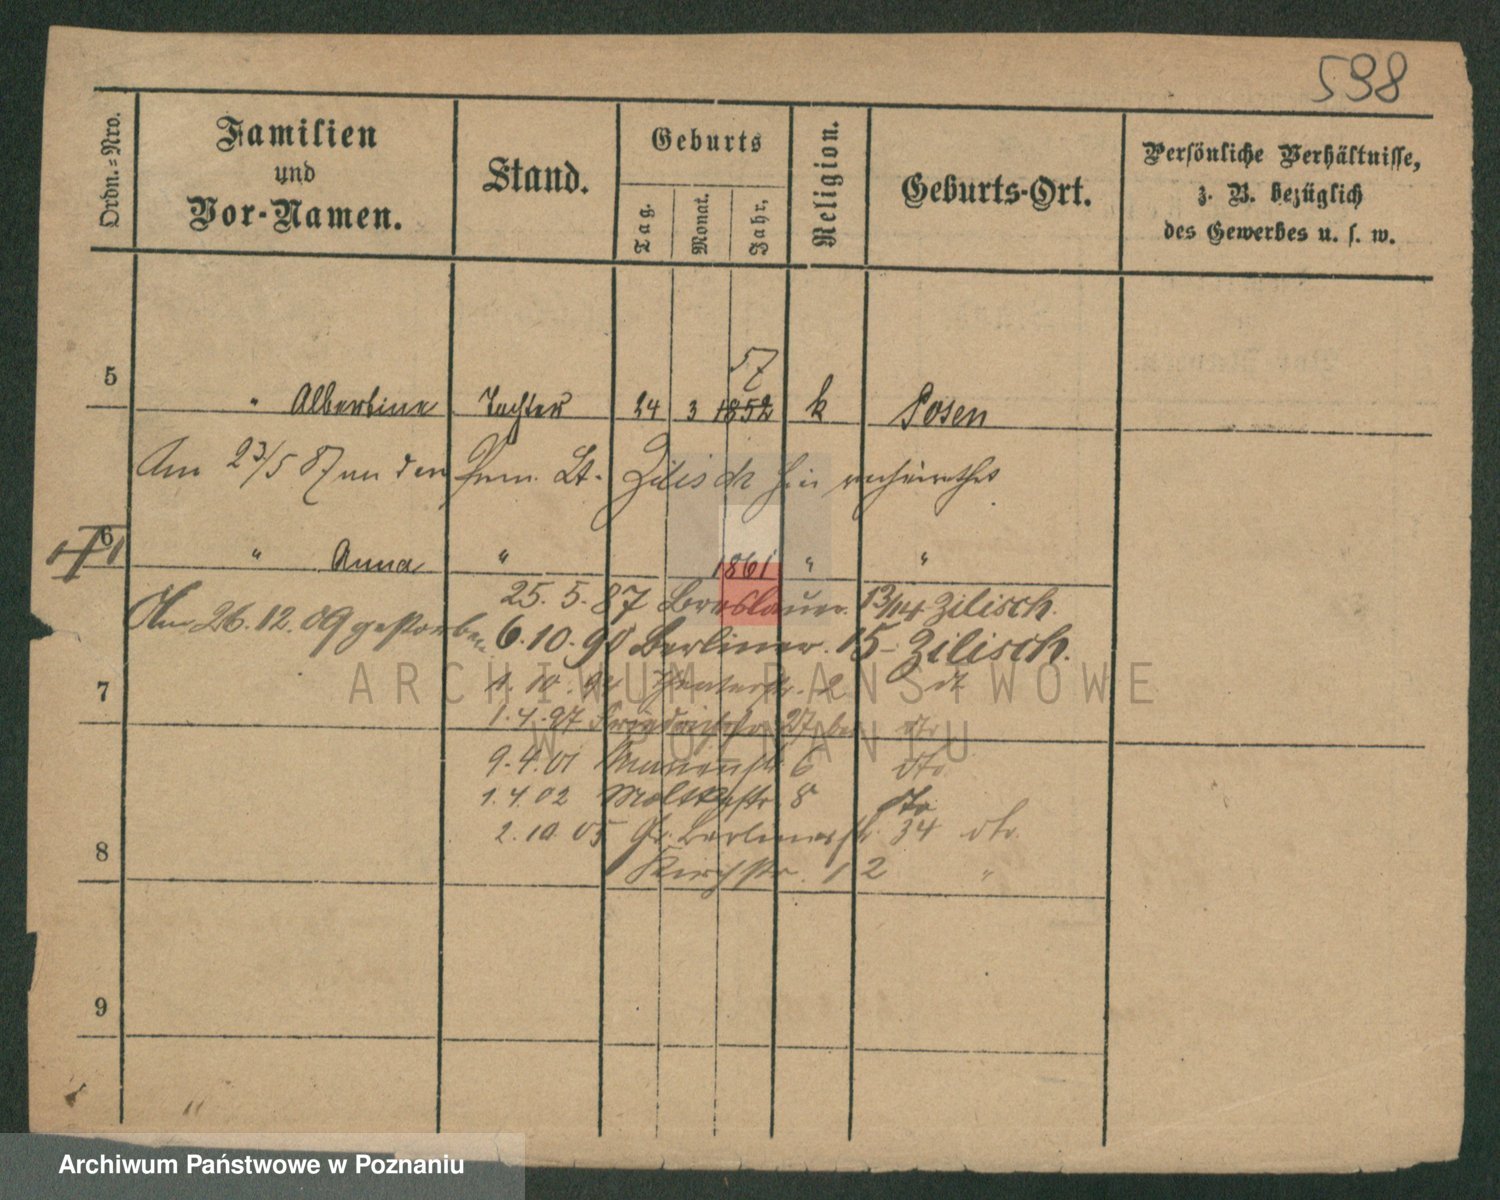 598
Ordn.=Nro.
Familien
und
Vor-Namen.
Stand.
Geburts
Tag.
Monat.
Jahr.
Religion.
Geburts-Ort.
Persönliche Verhältnisse,
z. B. bezüglich
des Gewerbes u. s. w.
57
5 " Albertine Tochter 24 3 1852 k Posen
Am 23/5 87 an den Prem. Lt. Zilisch hier verheirathet
6 " Anna " 1861 " "
25. 5. 87 Breslauer. 13/14 Zilisch.
Am 26.12.09 gestorben
6.10.90 Berliner. 15 - Zilisch.
7 1. 10. Theaterstr. 2 dt
1.4.97 27 dto
9.4.01 6 dto
1.4.02 Moltkestr. 8 dto
2.10.05 Gr. Berlinerstr. 34 dto.
8 Kirchstr. 12 "
9
"
ARCHIWUM PAŃSTWOWE
W POZNANIU
Archiwum Państwowe w Poznaniu